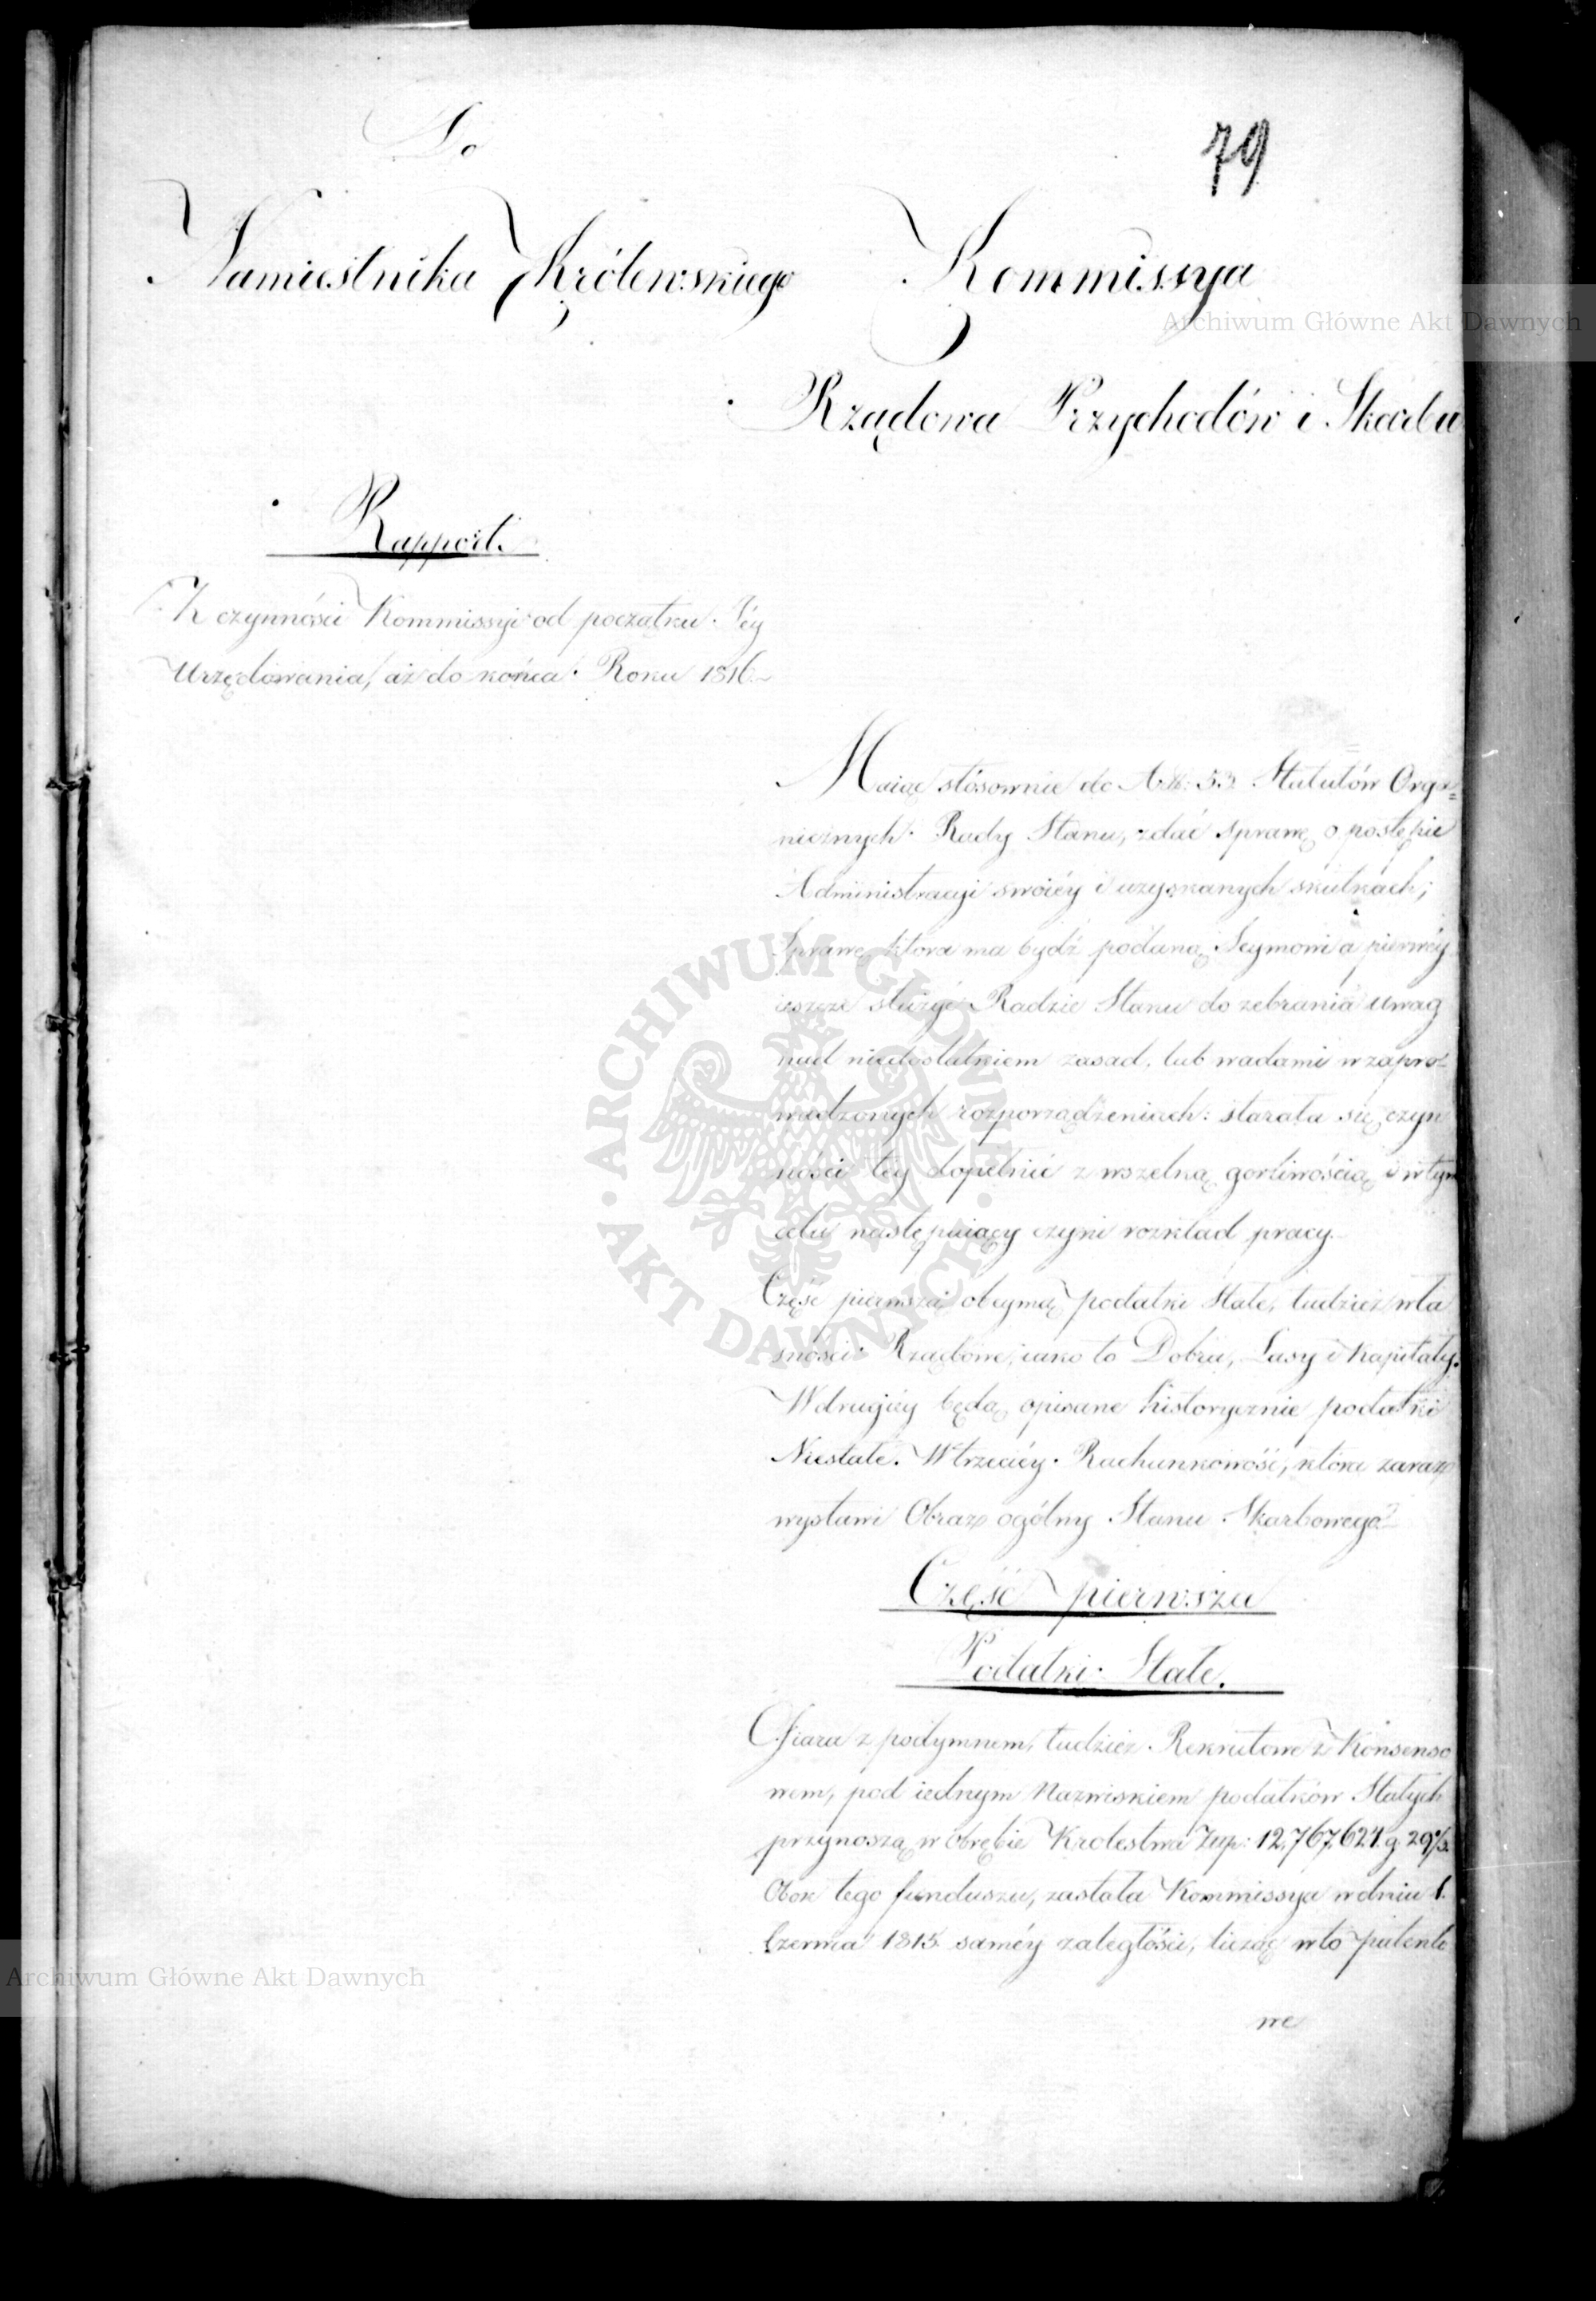 79
Do
Namiestnika Królewskiego
Kommissya
Rządowa Przychodów i Skarbu
Rapport.
Z czynności Kommissyi od początku Iéy
Urzędowania, aż do końca Roku 1816.
Maiąc stósownie do Art: 53. Statutów Orga=
nicznych Rady Stanu, zdać sprawę o postępie
Administracyi swoiéy i uzyskanych skutkach;
Sprawę ktora ma bydź podaną Seymowi a pierwéy
ieszcze służyć Radzie Stanu do zebrania uwag
nad niedostatkiem zasad, lub wadami w zapro=
wadzonych rozporządzeniach: starała się czyn
ności tey dopełnić z wszelką gorliwością i w tym
celu następuiący czyni rozkład pracy.
Część pierwsza obeyma podatki Stałe, tudzież wła
sności Rządowe, iako to Dobra, Lasy i Kapitały.
W drugiéy będą opisane historycznie podatki
Niestałe. W trzeciéy Rachunkowość, która zaraz
wystawi Obraz ogólny Stanu Skarbowego
Część pierwsza
Podatki Stałe.
Ofiara z podymnem, tudzież Rekrutowe z Konsenso
wem, pod iednym Nazwiskiem podatków Stałych
przynoszą w obrębie Krolestwa Złp: 12,767,624. g. 29
Obok tego funduszu, zastała Kommissya w dniu 1.
Czerwca 1815 saméy zaległości, licząc w to patento
we
Archiwum Główne Akt Dawnych
Archiwum Główne Akt Dawnych
ARCHIWUM GŁÓWNE AKT DAWNYCH